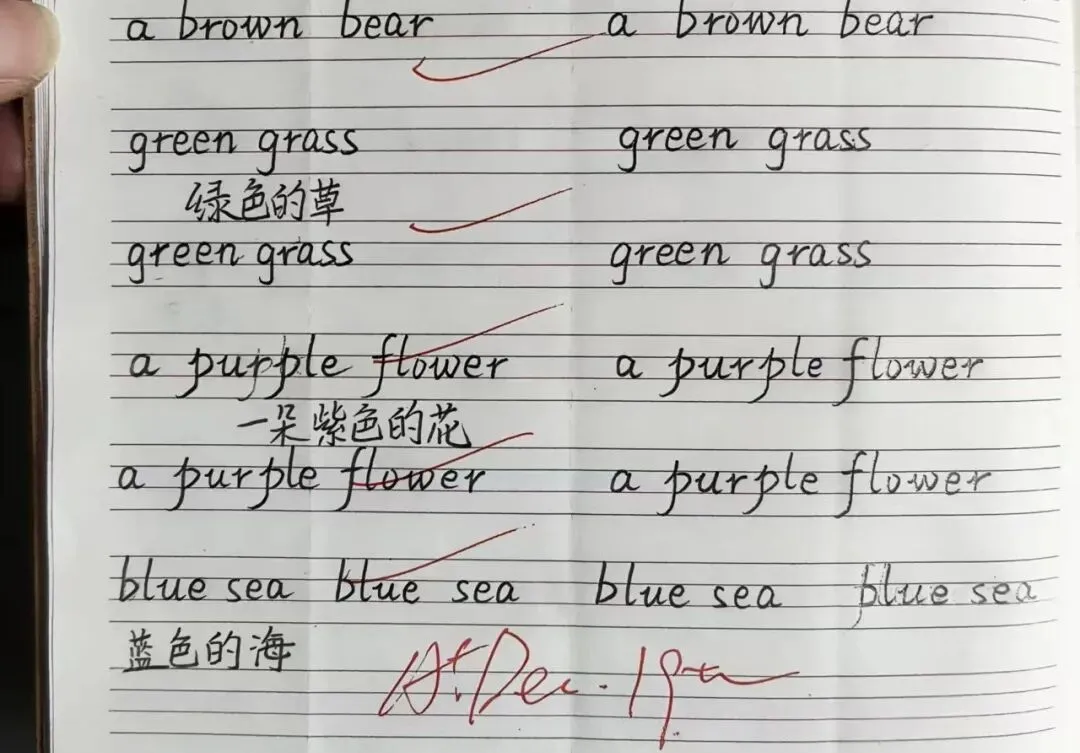 a brown bear a brown bear
green grass green grass
绿色的草
green grass green grass
a purple flower a purple flower
一朵紫色的花
a purple flower a purple flower
blue sea blue sea blue sea blue sea
蓝色的海
A+. Dec. 19th